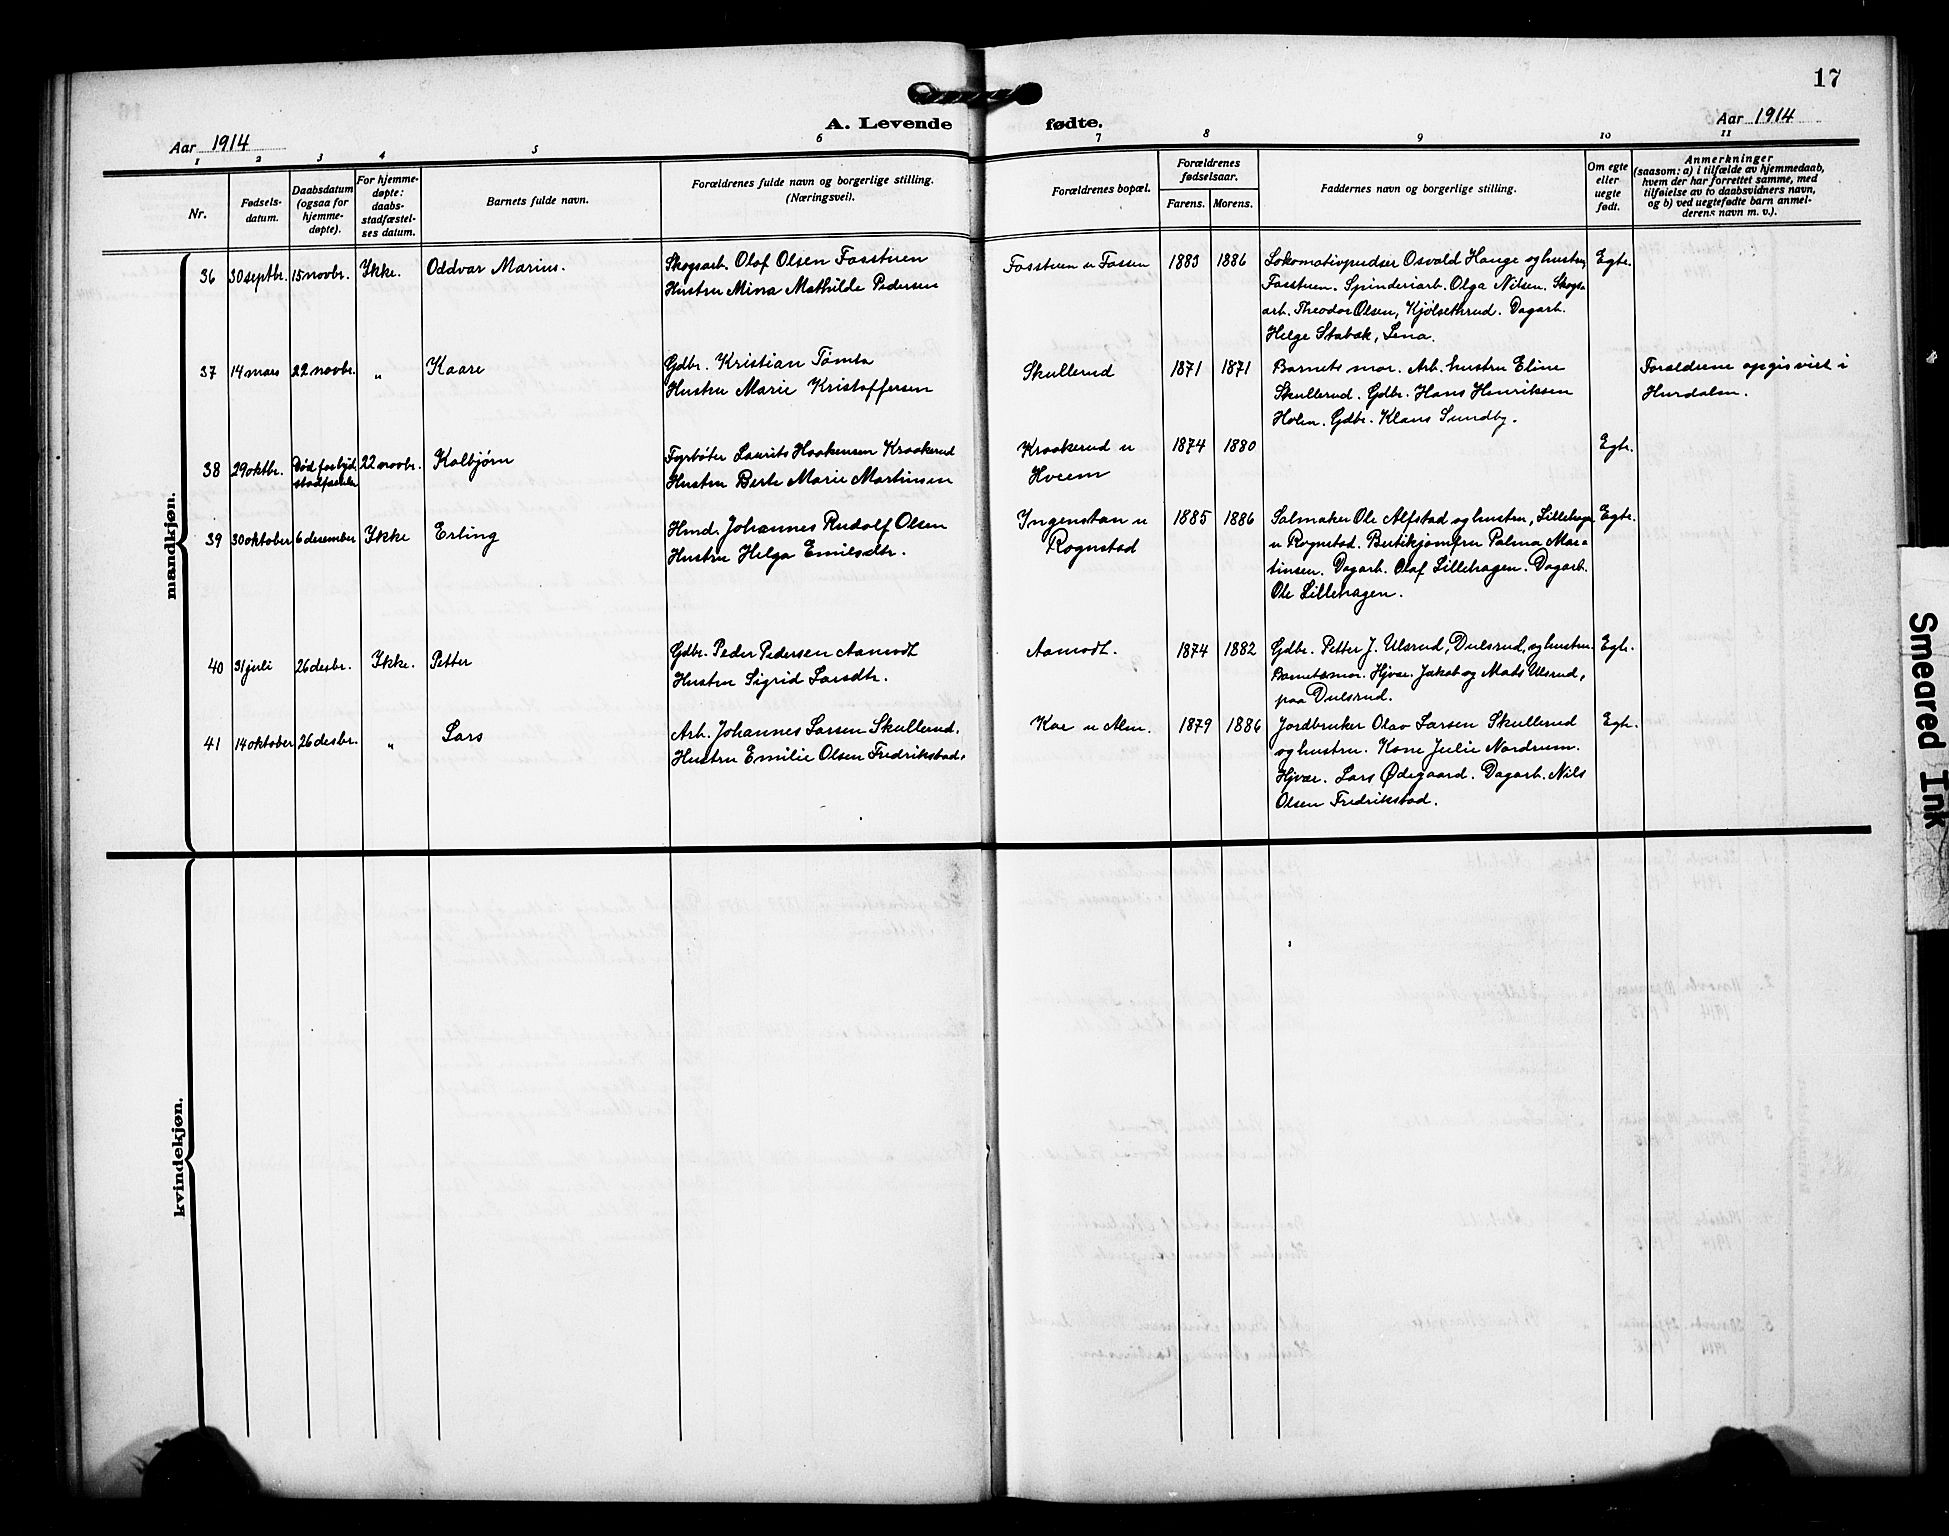 17
A. Levende fødte.
Aar 1914
Aar 1914
1 2 3 4 5 6 7 8 9 10 11
Nr.
Fødsels-
datum.
Daabsdatum
(ogsaa for
hjemme-
døpte).
For hjemme-
døpte:
daabs-
stadfæstel-
ses datum.
Barnets fulde navn.
Forældrenes fulde navn og borgerlige stilling.
(Næringsvei).
Forældrenes bopæl.
Forældrenes
fødselsaar.
Farens. Morens.
Faddernes navn og borgerlige stilling.
Om egte
eller
uegte
født.
Anmerkninger
(saasom: a) i tilfælde av hjemmedaab,
hvem der har forrettet samme, med
tilføielse av to daabsvidners navn,
og b) ved uegtefødte barn anmel-
derens navn m. v.).
mandkjøn.
36 30 septbr. 15 novbr. Ikke. Oddvar Marius.
Skogsarb. Olof Olsen Fosstuen
Hustru Mina Mathilde Pedersen
Fosstuen u Fossen 1883 1886
Lokomotivpudser Osvald Hauge og hustru,
Fosstuen. Spinderiarb. Olga Nilsen. Skogs-
arb. Theodor Olsen, Kjølsethrud. Dagarb.
Helge Stabak, Lena.
Egte.
37 14 mars 22 novbr. „ Kaare
Gdbr. Kristian Tømta
Hustru Marie Kristoffersen
Skullerud 1871 1871
Barnets mor. Arb. hustru Eline
Skullerud. Gdbr. Hans Henriksen
Holm. Gdbr. Klaus Sundby.
Forældrene opgis viet i
Hurdalen.
38 29 oktbr. Død før 22 novbr. Kolbjørn
Fyrbøter Laurits Haakensen Kraakerud
Hustru Berte Marie Martinsen
Kraakerud u
Hveem
1874 1880
Egte.
39 30 oktober 6 desember Ikke Erling
Hmd. Johannes Rudolf Olsen
Hustru Helga Emilsdtr.
Ingenstan u
Rognstad
1885 1886
Salmaker Ole Alfstad og hustru, Lillehagen
u Rognstad. Butikjomfru Palma Mar-
tinsen. Dagarb. Olaf Lillehagen. Dagarb.
Ole Lillehagen.
Egte.
40 31 juli 26 desbr. Ikke. Petter
Gdbr. Peder Pedersen Aamodt
Hustru Sigrid Larsdtr.
Aamodt. 1874 1882
Gdbr. Petter J. Ulsrud, Dulsrud, og hustru.
Barnets mor. Hjvær. Jakob og Mats Ulsrud,
paa Dulsrud.
Egte.
41 14 oktober 26 desbr. „ Lars
Arb. Johannes Larsen Skullerud.
Hustru Emilie Olsen Fredrikstad.
Kor u Alm. 1879 1886
Jordbruker Olav Larsen Skullerud
og hustru. Kone Julie Nordrum.
Hjvær. Lars Ødegaard. Dagarb. Nils
Olsen Fredrikstad.
Egte.
kvindekjøn.
Smeared Ink